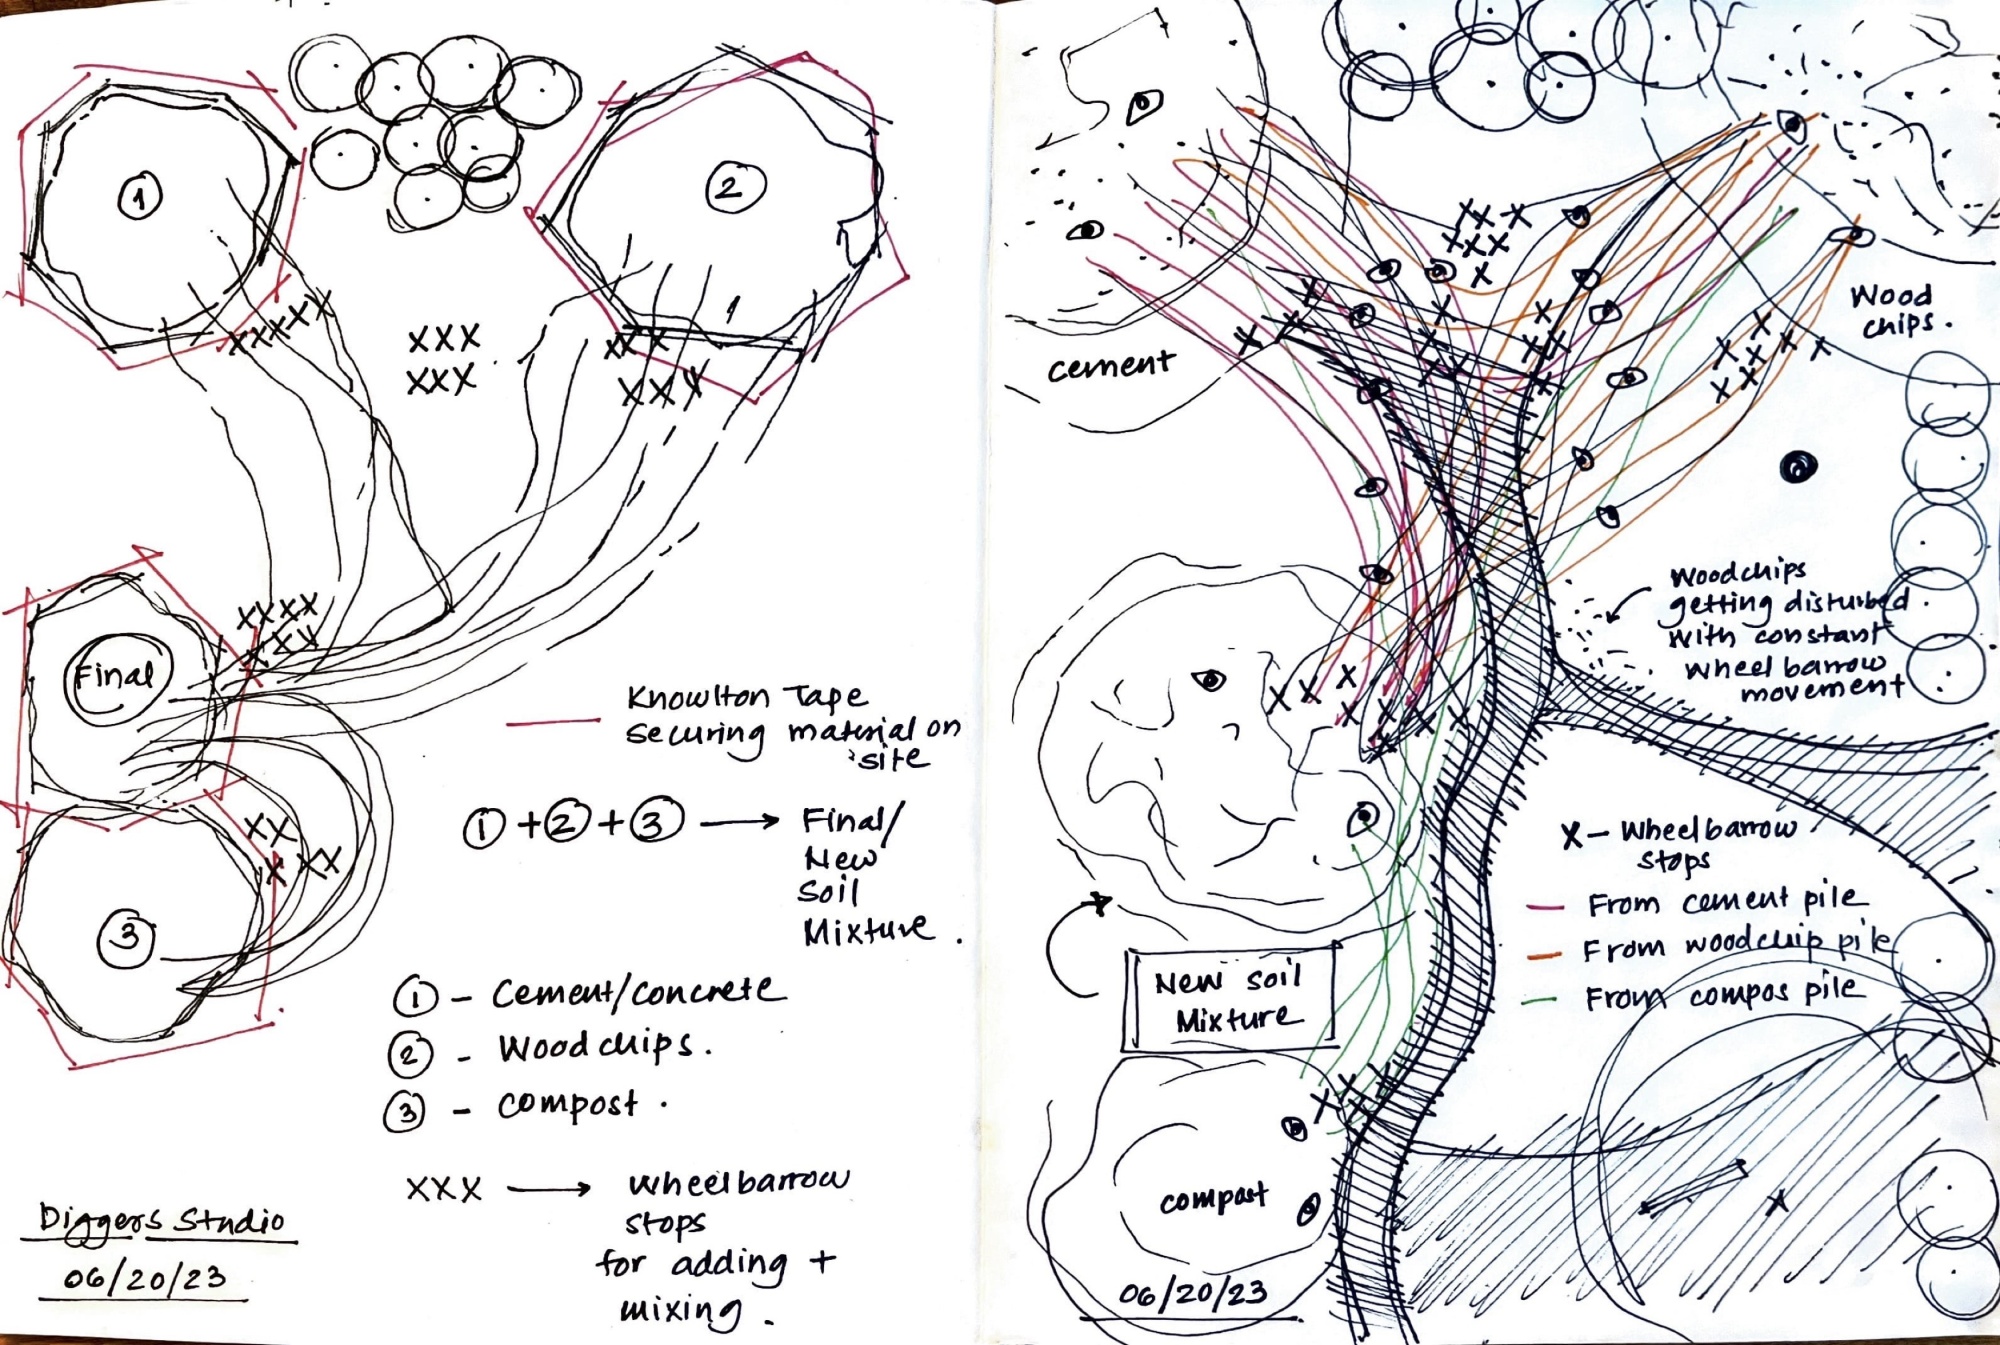 1
2
XXXXX
XXX
XXX
XXX
XXX
XXXX
XX
Final
XX
XXX
3
Knowlton Tape
securing material on
site
1 + 2 + 3 → Final/
New
Soil
Mixture.
1 - Cement/concrete
2 - Woodchips.
3 - compost.
XXX → wheelbarrow
stops
for adding +
mixing.
Diggers Studio
06/20/23
cement
Wood
chips.
Woodchips
getting disturbed
with constant
wheelbarrow
movement
X – Wheelbarrow
stops
— From cement pile
— From woodchip pile
— From compos pile
New soil
Mixture
compost
06/20/23